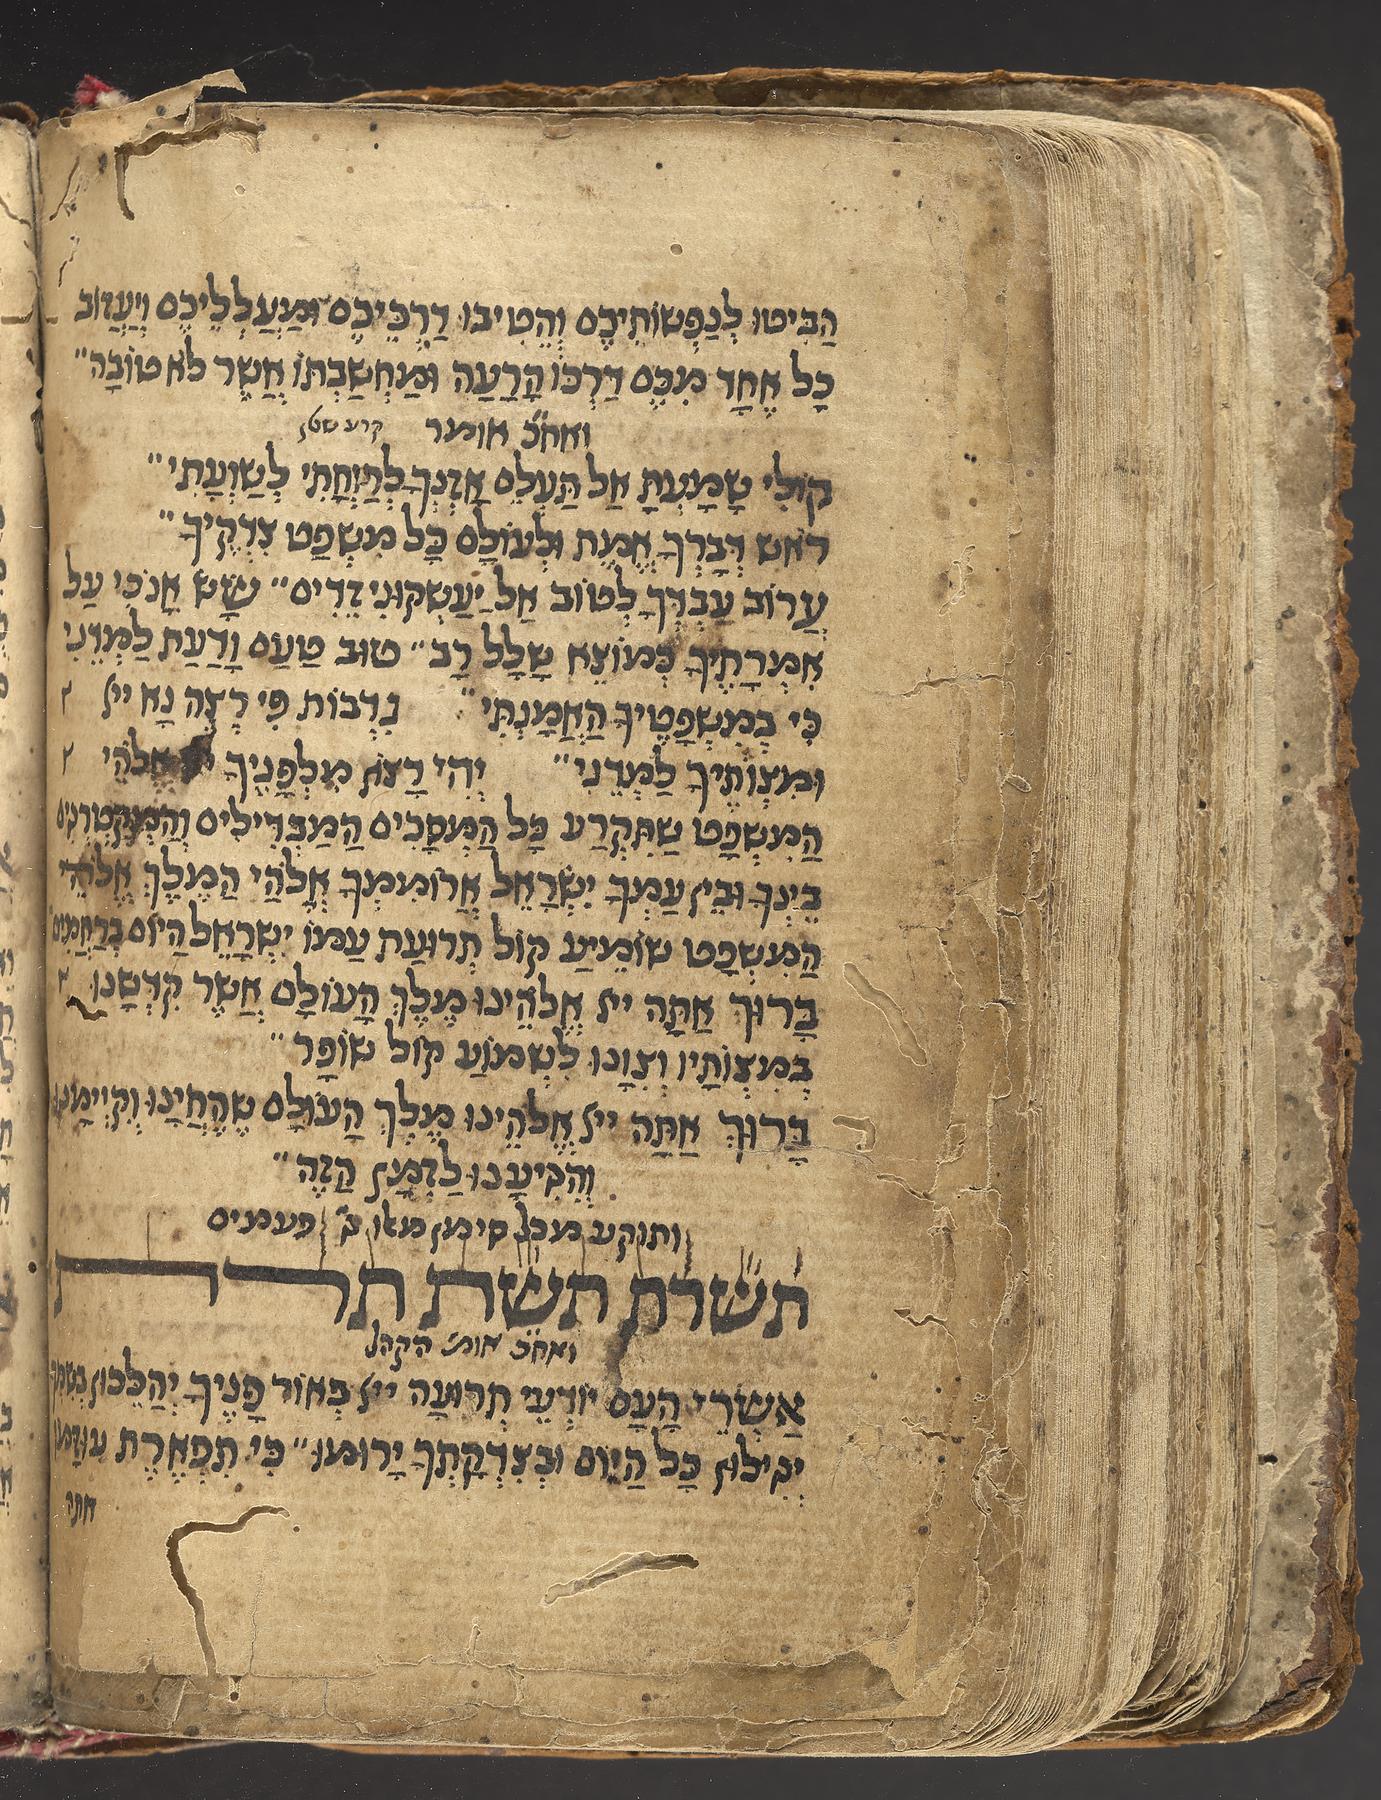 הַבִּיטוּ לְנַפְשׁוֹתֵיכֶם וְהֵטִיבוּ דַרְכֵיכֶם וּמַעַלְלֵיכֶם וְיַעֲזוֹב
כָּל אֶחָד מִכֶּם דַּרְכּוֹ הָרָעָה וּמַחְשַׁבְתּוֹ אֲשֶׁר לֹא טוֹבָה״
ואח״כ אומר קרע שטן
קוֹלִי שָׁמָעְתָּ אַל תַּעְלֵם אָזְנְךָ לְרַוְחָתִי לְשַׁוְעָתִי״
רֹאשׁ דְּבָרְךָ אֱמֶת וּלְעוֹלָם כָּל מִשְׁפַּט צִדְקֶיךָ״
עֲרוֹב עַבְדְּךָ לְטוֹב אַל יַעַשְׁקוּנִי זֵדִים״ שָׂשׂ אָנֹכִי עַל
אִמְרָתֶיךָ כְּמוֹצֵא שָׁלָל רָב״ טוּב טַעַם וָדַעַת לַמְּדֵנִי
כִּי בְמִשְׁפָּטֶיךָ הֶאֱמָנְתִּי״ נִדְבוֹת פִּי רְצֵה נָא ייֹ
וּמִצְוֹתֶיךָ לַמְּדֵנִי״ יְהִי רָצוֹן מִלְּפָנֶיךָ אֱלֹהֵי
הַמִּשְׁפָּט שֶׁתִּקְרַע כָּל הַמְּסָכִים הַמַּבְדִּילִים וְהַמְּקַטְרְגִים
בֵּינְךָ וּבֵין עַמְּךָ יִשְׂרָאֵל אֲרוֹמִמְךָ אֱלֹהַי הַמֶּלֶךְ אֱלֹהֵי
הַמִּשְׁפָּט שׁוֹמֵיעַ קוֹל תְּרוּעַת עַמּוֹ יִשְׂרָאֵל הַיּוֹם בְּרַחֲמִים
בָּרוּךְ אַתָּה ייֹ אֱלֹהֵינוּ מֶלֶךְ הָעוֹלָם אֲשֶׁר קִדְּשָׁנוּ
בְּמִצְוֹתָיו וְצִוָּנוּ לִשְׁמוֹעַ קוֹל שׁוֹפָר״
בָּרוּךְ אַתָּה ייֹ אֱלֹהֵינוּ מֶלֶךְ הָעוֹלָם שֶׁהֶחֱיָנוּ וְקִיְּימָנוּ
וְהִגִּיעָנוּ לַזְּמַן הַזֶּה״
ותוקע מכל סימן מאן ג׳ פעמים
תשרת תשת תרת
ואח״כ אומ׳ הקהל
אַשְׁרֵי הָעָם יוֹדְעֵי תְרוּעָה ייֹ בְּאוֹר פָּנֶיךָ יְהַלֵּכוּן בְּשִׁמְךָ
יְגִילוּן כָּל הַיּוֹם וּבְצִדְקָתְךָ יָרוּמוּ״ כִּי תִפְאֶרֶת עוּזָּמוֹ
אתה